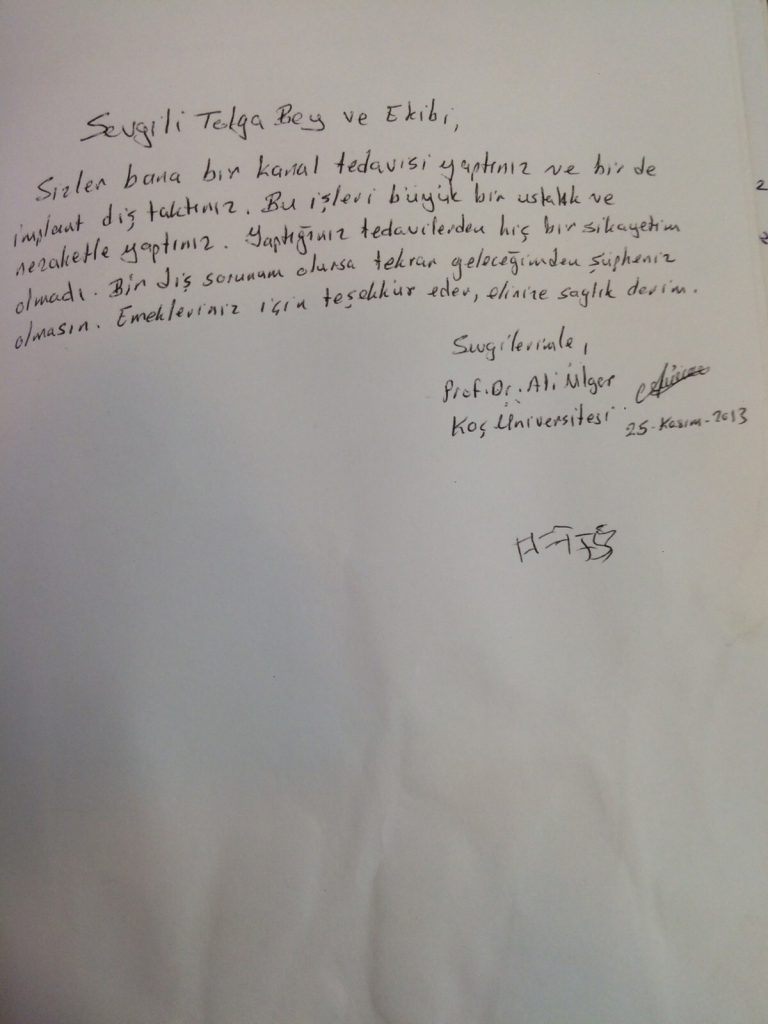 Sevgili Tolga Bey ve Ekibi,
Sizler bana bir kanal tedavisi yaptınız ve bir de
implant diş taktınız. Bu işleri büyük bir ustalık ve
nezaketle yaptınız. Yaptığınız tedavilerden hiç bir şikayetim
olmadı. Bir diş sorunum olursa tekrar geleceğimden şüpheniz
olmasın. Emekleriniz için teşekkür eder, elinize sağlık derim.
Sevgilerimle,
Prof. Dr. Ali Ülger
Koç Üniversitesi
25-Kasım-2013